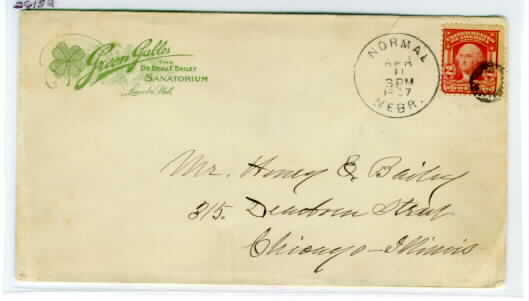 Green Gables
THE
DR. BENJ. F. BAILEY
SANATORIUM
Lincoln, Neb.
NORMAL
11
3 PM
1907
NEBR.
2 2
Mr. Henry E. Bailey
315. Dearborn Street
Chicago-Illinois